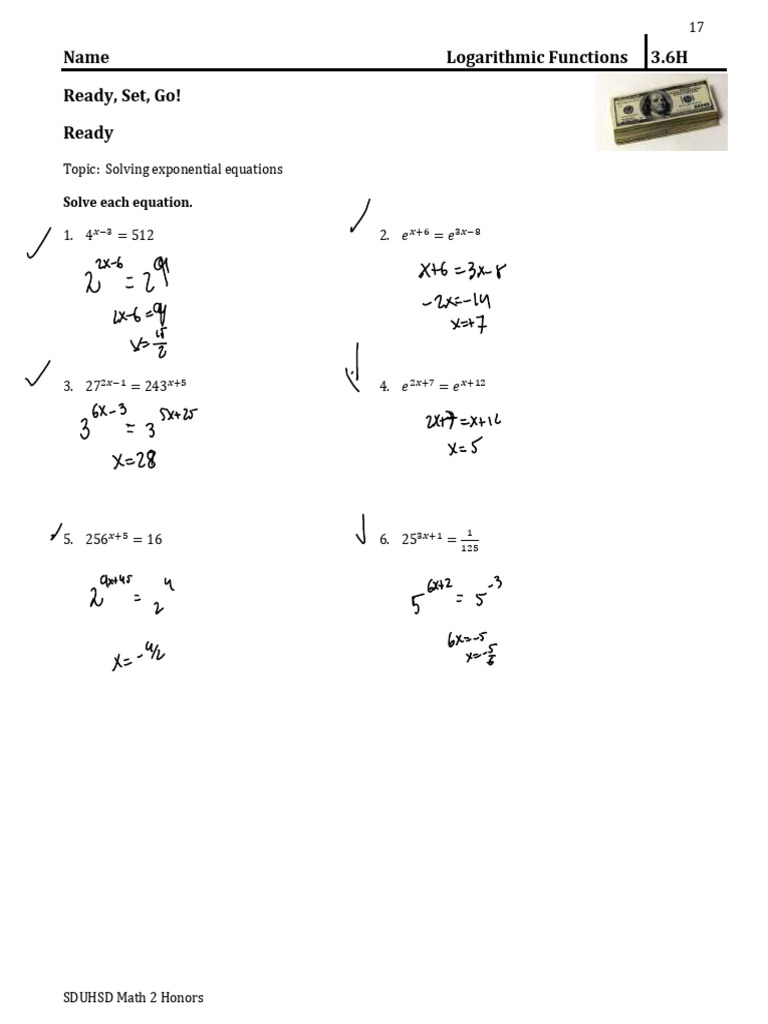 17
Name Logarithmic Functions 3.6H
Ready, Set, Go!
Ready
Topic: Solving exponential equations
Solve each equation.
1. 4^{x−3} = 512 2. e^{x+6} = e^{3x−8}
2^{2x-6} = 2^{9} x+6 = 3x-8
2x-6 = 9 -2x=-14
x= 15/2 x=+7
3. 27^{2x−1} = 243^{x+5} 4. e^{2x+7} = e^{x+12}
3^{6x-3} = 3^{5x+25} 2x+7 = x+12
x=28 x=5
5. 256^{x+5} = 16 6. 25^{3x+1} = 1/125
2^{9x+45} = 2^{4} 5^{6x+2} = 5^{-3}
x= -9/2 6x=-5
x=-5/6
SDUHSD Math 2 Honors